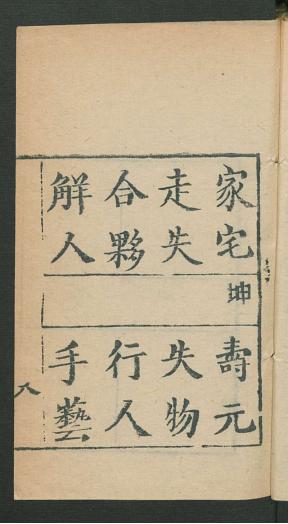 家宅
走失
合夥
解人
坤
壽元
失物
行人
手藝
八